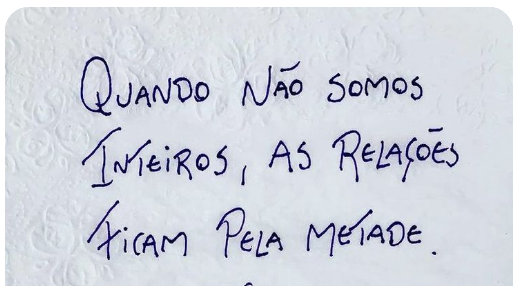 Quando não somos
inteiros, as relações
ficam pela metade.